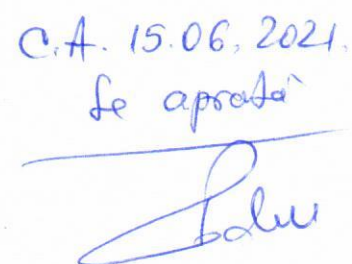 C.A. 15.06.2021.
Se aprobă